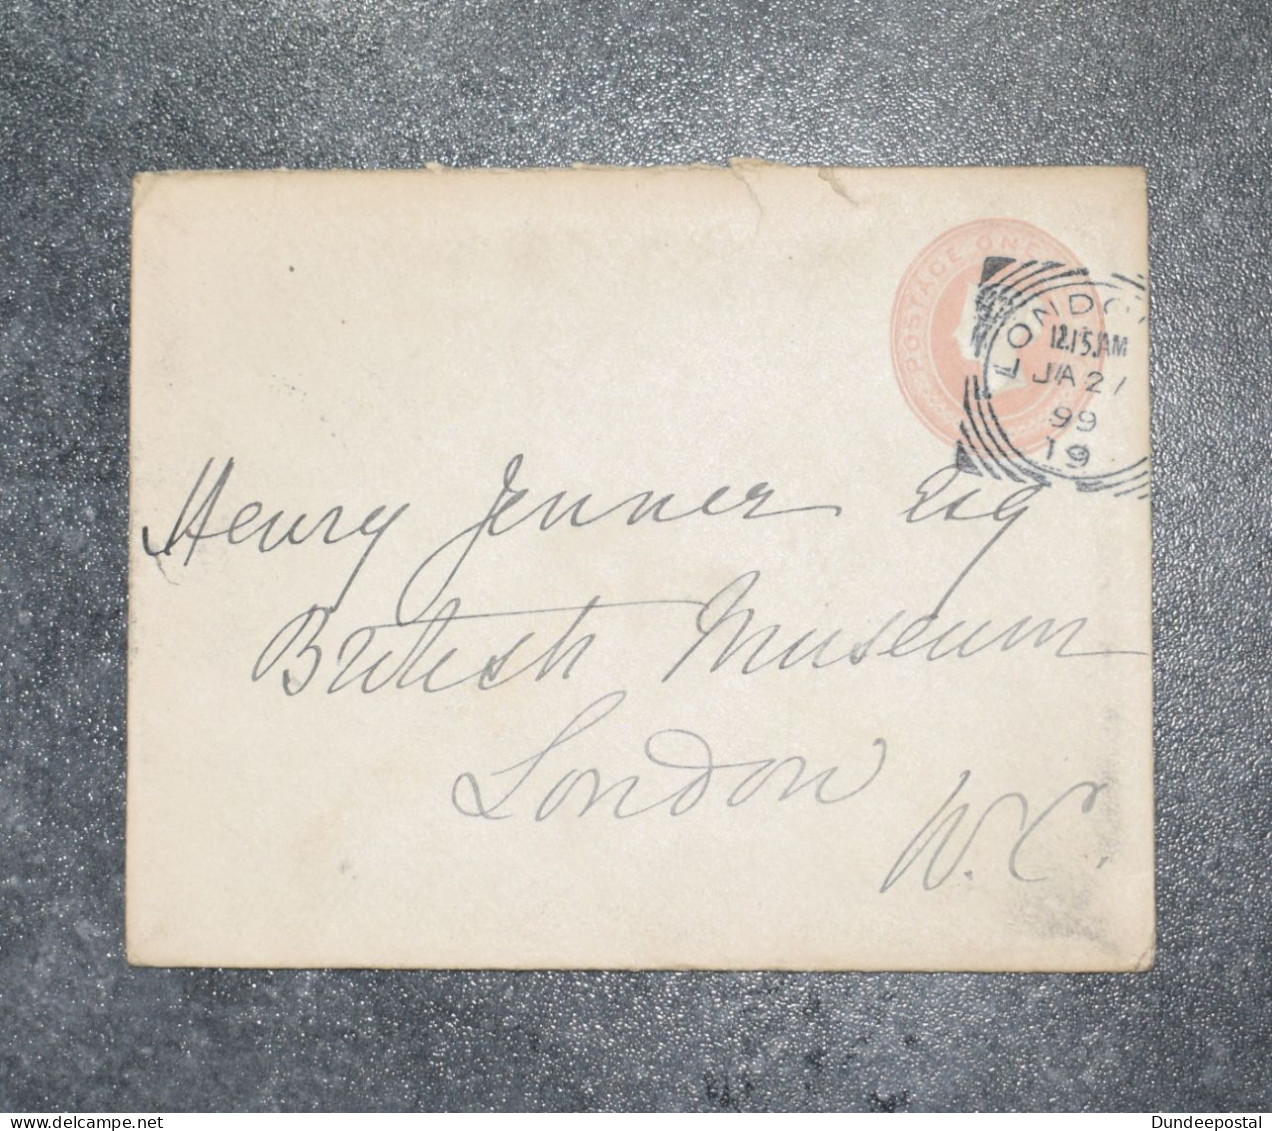 POSTAGE ONE
LONDON
12.15AM
JA 27
99
19
Henry Jenner Esq
British Museum
London
W.C.
delcampe.net
Dundeepostal